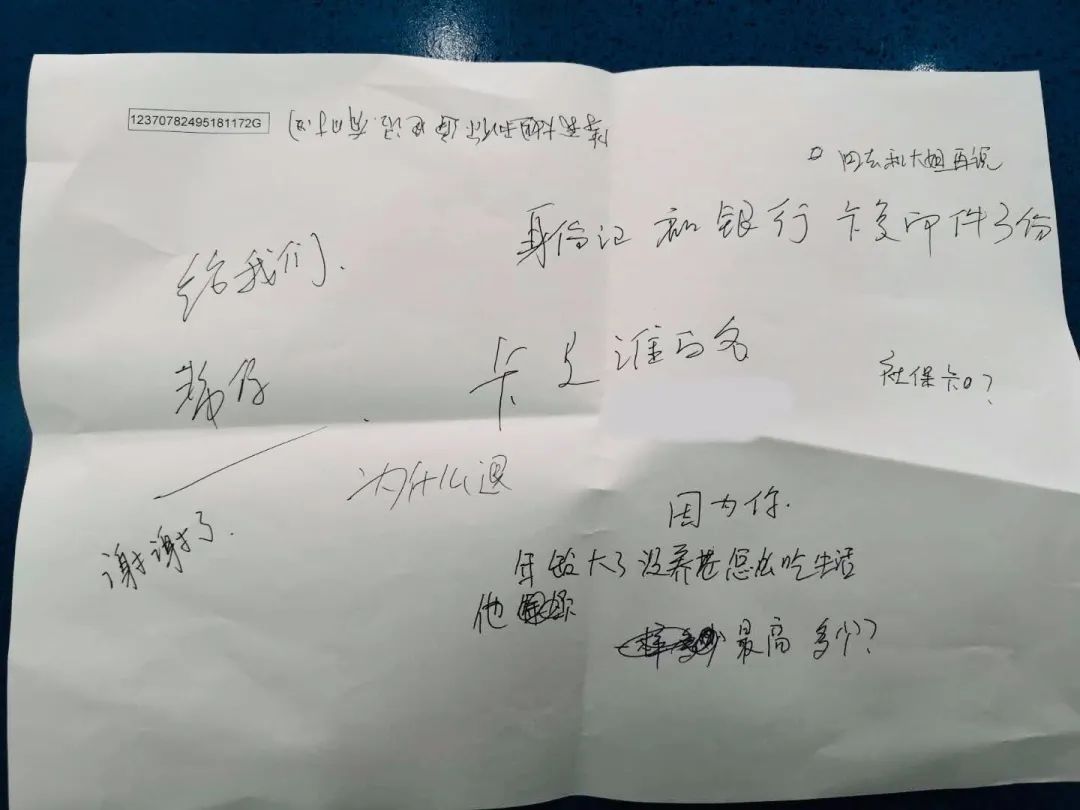 12370782495181172G
回去和大姐再说
身份证和银行卡复印件3份
给我们.
卡是谁的名
社保卡?
为什么退
谢谢了.
因为你.
年龄大了没养老怎么吃生活
他
最高多少?